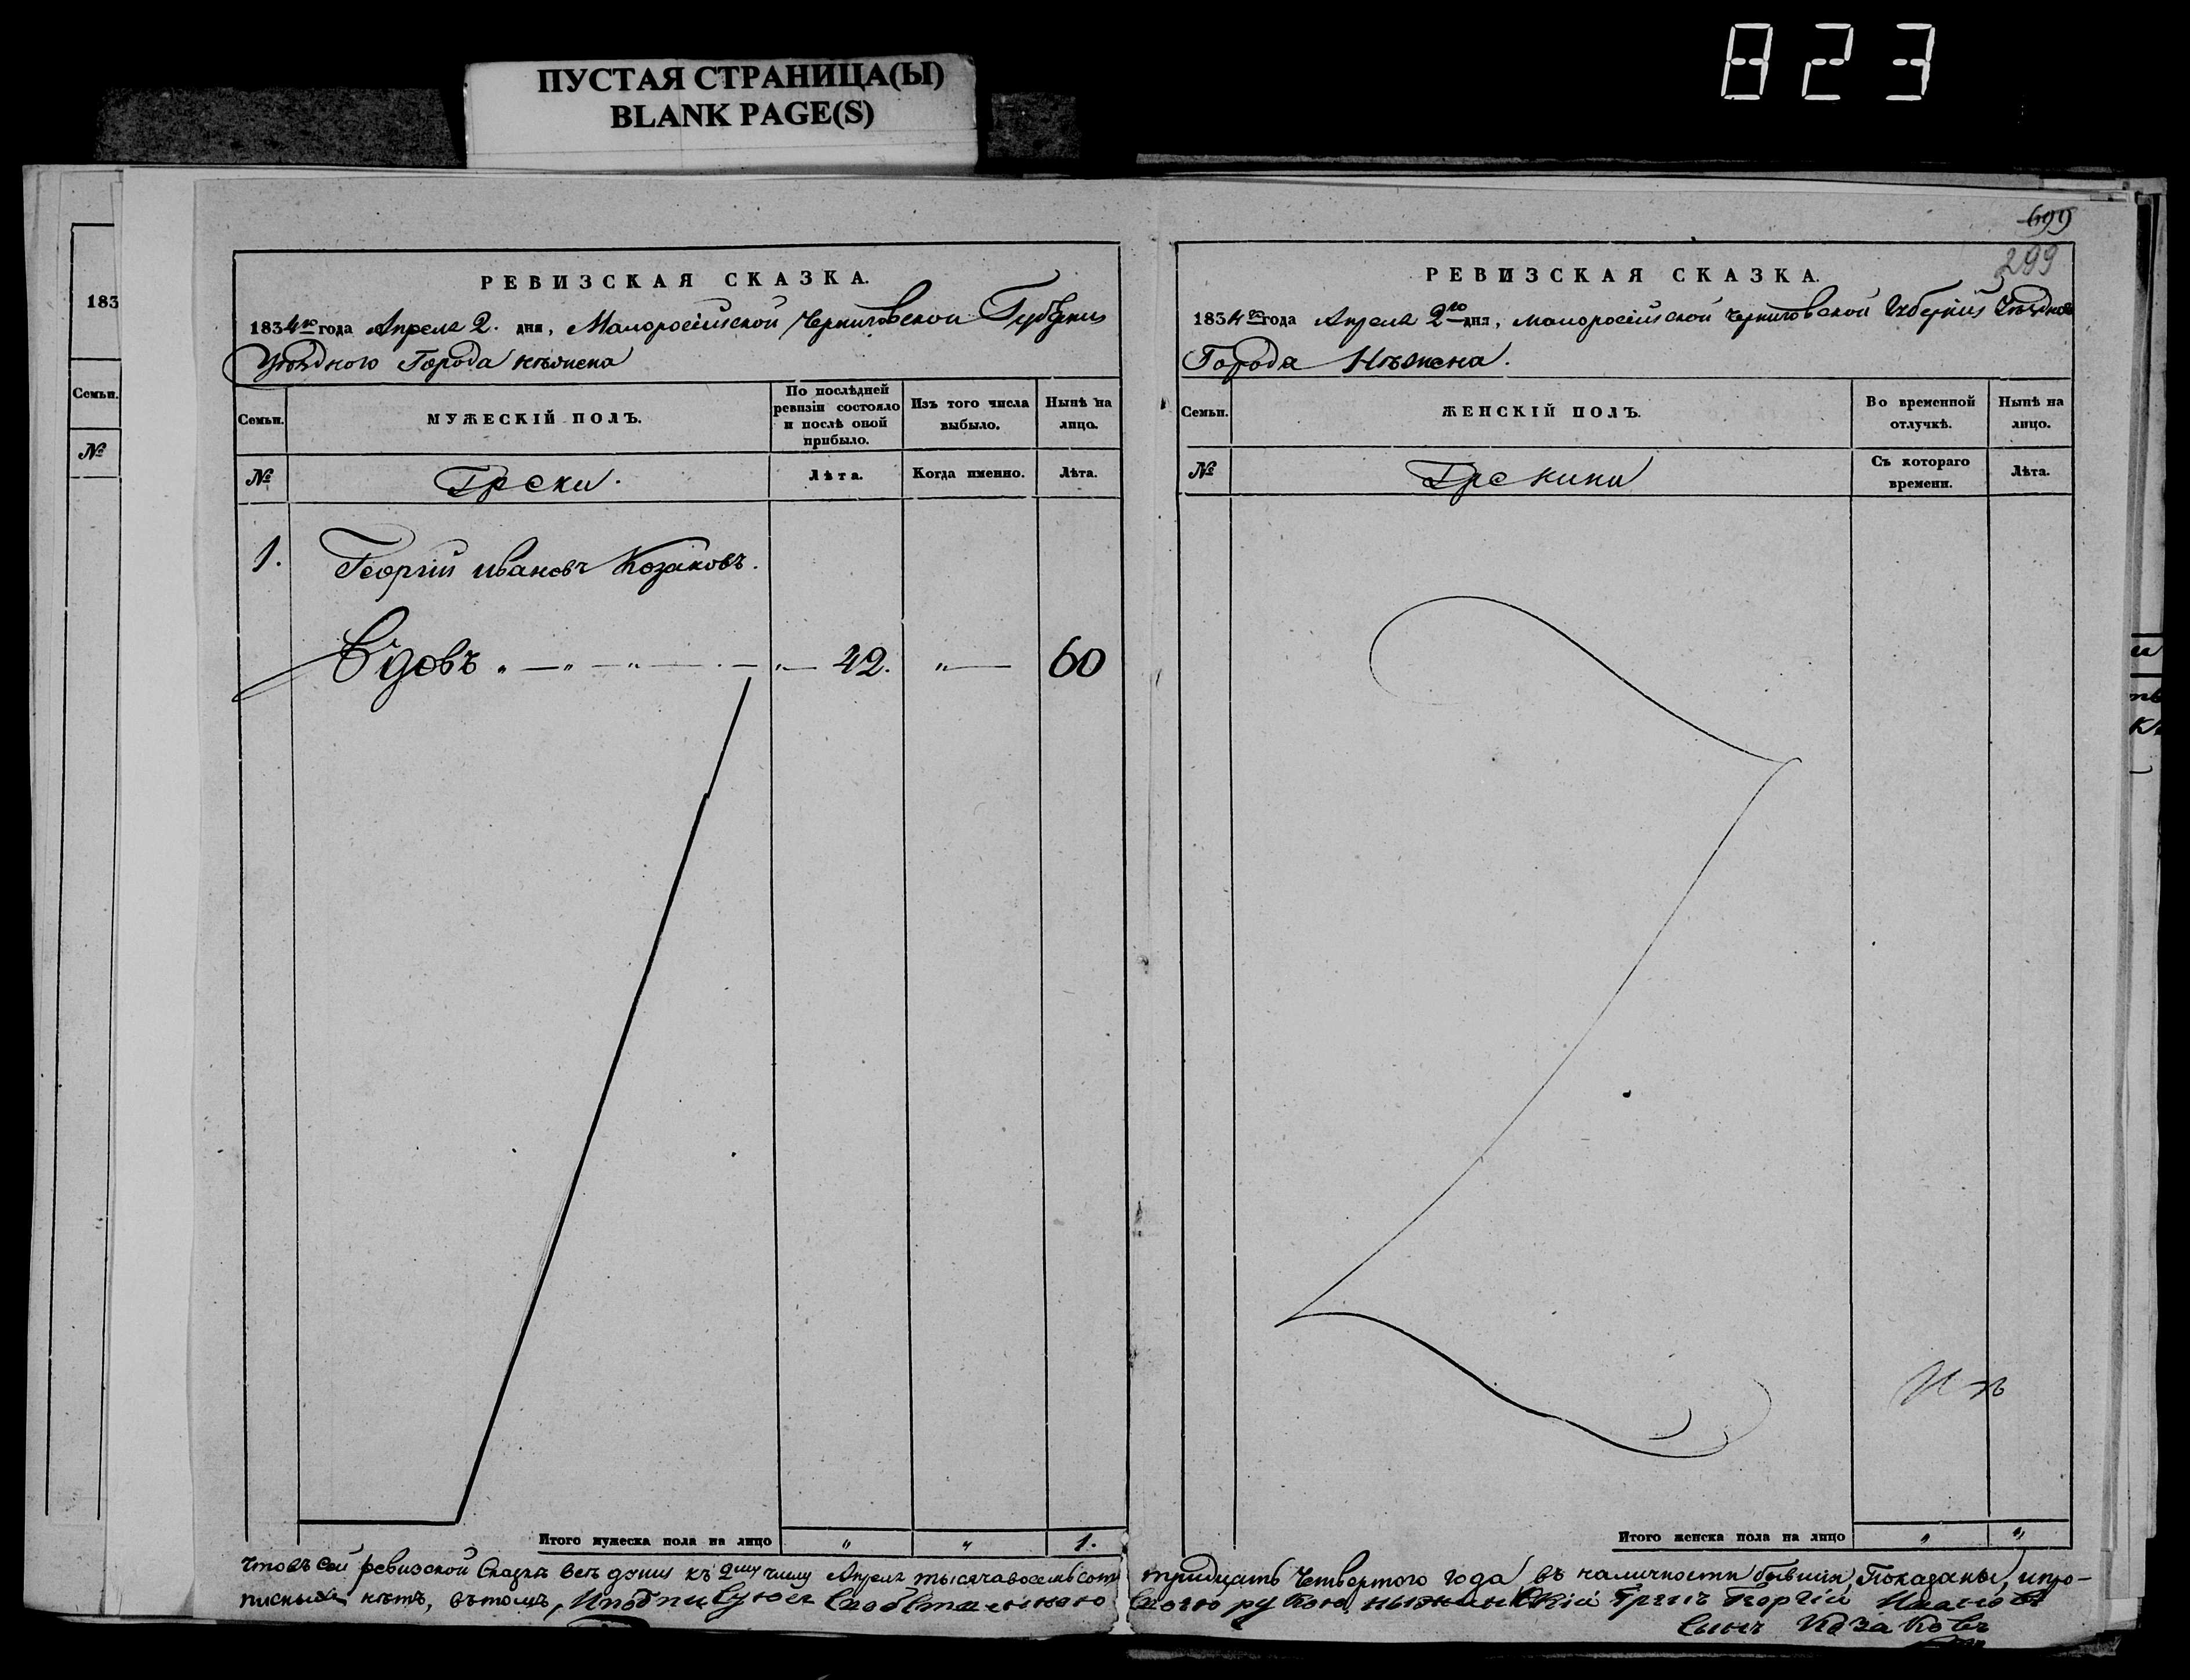 823
ПУСТАЯ СТРАНИЦА(Ы)
BLANK PAGE(S)
183
Семьи.
№
РЕВИЗСКАЯ СКАЗКА.
1834го года Апреля 2. дня, Малоросiйской Черниговской Губернiи
Уѣзднаго Города Нѣжена
Семьи.
МУЖЕСКІЙ ПОЛЪ.
По послѣдней ревизіи состояло и послѣ оной прибыло.
Изъ того числа выбыло.
Нынѣ на лицо.
№
Греки.
Лѣта.
Когда именно.
Лѣта.
1. Георгій Ивановъ Козаковъ.
Вдовъ 42. 60
Итого мужеска пола на лицо " " 1.
699
299
РЕВИЗСКАЯ СКАЗКА.
1834го года Апреля 2го дня, Малоросiйской Черниговской Губернiи Уѣзднаго
Города Нѣжена.
Семьи.
ЖЕНСКІЙ ПОЛЪ.
Во временной отлучкѣ.
Нынѣ на лицо.
№
Грекини
Съ котораго времени.
Лѣта.
Итого женска пола на лицо " "
что въ сей ревизской Сказкѣ всѣ души къ 2му числу Апреля тысяча восемь сотъ тридцать Четвертого года въ наличности бывшiи, Показаны, и про-
писныхъ нѣтъ, въ томъ, И подписуюся Своею рукою, нѣжинскiй Грекъ Георгiй Ивановъ
Сынъ Козаковъ